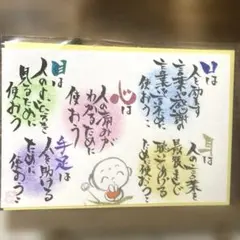 口は
人を励ます
言葉や感謝の
言葉を言うために
使おう
耳は
人の言葉を
最後まで
聴いてあげる
ために使おう
目は
人のよいところを
見るために
使おう
手足は
人を助ける
ために
使おう
心は
人の痛みが
わかるために
使おう